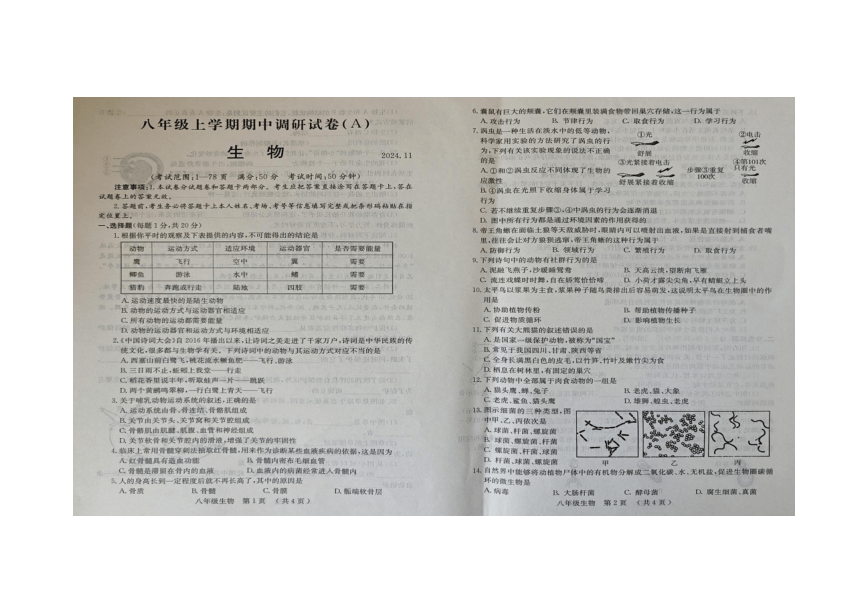 八年级上学期期中调研试卷(A)
生 物
2024.11
(考试范围:1—78页 满分:50分 考试时间:50分钟)
注意事项:1.本试卷分试题卷和答题卡两部分。考生应把答案直接涂写在答题卡上,答在
试题卷上的答案无效。
2.答题前,考生务必将答题卡上本人姓名、考场、考号等信息填写完整或把条形码粘贴在指
定位置上。
一、选择题(每题1分,共20分)
1.根据你平时的观察及下表提供的内容,不可能得出的结论是
动物 运动方式 适应环境 运动器官 是否需要能量
鹰 飞行 空中 翼 需要
鲫鱼 游泳 水中 鳍 需要
猎豹 奔跑或行走 陆地 四肢 需要
A.运动速度最快的是陆生动物
B.动物的运动方式与运动器官相适应
C.所有动物的运动都需要能量
D.动物的运动器官和运动方式与环境相适应
2.《中国诗词大会》自2016年播出以来,让诗词之美走进了千家万户,诗词是中华民族的传
统文化,很多都与生物学有关。下列诗词中的动物与其运动方式对应不当的是
A.西塞山前白鹭飞,桃花流水鳜鱼肥——飞行、游泳
B.三日而不止,蚯蚓上我堂——行走
C.稻花香里说丰年,听取蛙声一片——跳跃
D.两个黄鹂鸣翠柳,一行白鹭上青天——飞行
3.关于哺乳动物运动系统的叙述,正确的是
A.运动系统由骨、骨连结、骨骼肌组成
B.关节由关节头、关节窝和关节腔组成
C.骨骼肌由肌腱、肌腹、血管和神经组成
D.关节软骨和关节腔内的滑液,增强了关节的牢固性
4.临床上常用骨髓穿刺法抽取红骨髓,用来作为诊断某些血液疾病的依据,这是因为
A.红骨髓具有造血功能 B.骨髓内密布毛细血管
C.骨髓是滞留在骨内的血液 D.血液内的病菌经常进入骨髓内
5.人的身高长到一定程度后就不再长高了,其中的原因是
A.骨质 B.骨髓 C.骨膜 D.骺端软骨层
八年级生物 第1页 (共4页)
6.囊鼠有巨大的颊囊,它们在颊囊里装满食物带回巢穴存储,这一行为属于
A.攻击行为 B.节律行为 C.取食行为 D.学习行为
7.涡虫是一种生活在淡水中的低等动物,
科学家用实验的方法研究了涡虫的行
为,下列有关该实验现象的说法不正确
的是
①光
舒展
②电击
收缩
③光紧接着电击
舒展紧接着收缩
步骤③重复
100次
④第101次
只有光
收缩
A.①和②涡虫反应不同体现了生物的
应激性
B.④涡虫在光照下收缩身体属于学习
行为
C.若不继续重复步骤③,④中涡虫的行为会逐渐消退
D.图中所有行为都是通过环境因素的作用获得的
8.帝王角蜥在面临土狼等天敌威胁时,眼睛内可以喷射出血液,如果是直接射到捕食者嘴
里,往往会让对方狼狈逃窜,帝王角蜥的这种行为属于
A.防御行为 B.领域行为 C.繁殖行为 D.取食行为
9.下列诗句中的动物有社群行为的是
A.泥融飞燕子,沙暖睡鸳鸯 B.天高云淡,望断南飞雁
C.流连戏蝶时时舞,自在娇莺恰恰啼 D.小荷才露尖尖角,早有蜻蜓立上头
10.太平鸟以浆果为主食,浆果种子随鸟粪排出后容易萌发,这说明太平鸟在生物圈中的作
用是
A.协助植物传粉 B.帮助植物传播种子
C.促进物质循环 D.影响植物生长
11.下列有关大熊猫的叙述错误的是
A.是国家一级保护动物,被称为“国宝”
B.常见于我国四川、甘肃、陕西等省
C.全身长满黑白色的皮毛,以竹笋、竹叶及嫩竹尖为食
D.栖息在树林里,有固定的巢穴
12.下列动物中全部属于肉食动物的一组是
A.猫头鹰、蝉、兔子 B.老虎、猫、大象
C.老虎、鲨鱼、猫头鹰 D.雄狮、蝗虫、老虎
13.图示细菌的三种类型,图
中甲、乙、丙依次是
A.球菌、杆菌、螺旋菌
B.球菌、螺旋菌、杆菌
C.螺旋菌、杆菌、球菌
D.杆菌、球菌、螺旋菌
甲 乙 丙
14.自然界中能够将动植物尸体中的有机物分解成二氧化碳、水、无机盐,促进生物圈碳循
环的微生物是
A.病毒 B.大肠杆菌 C.酵母菌 D.腐生细菌、真菌
八年级生物 第2页 (共4页)